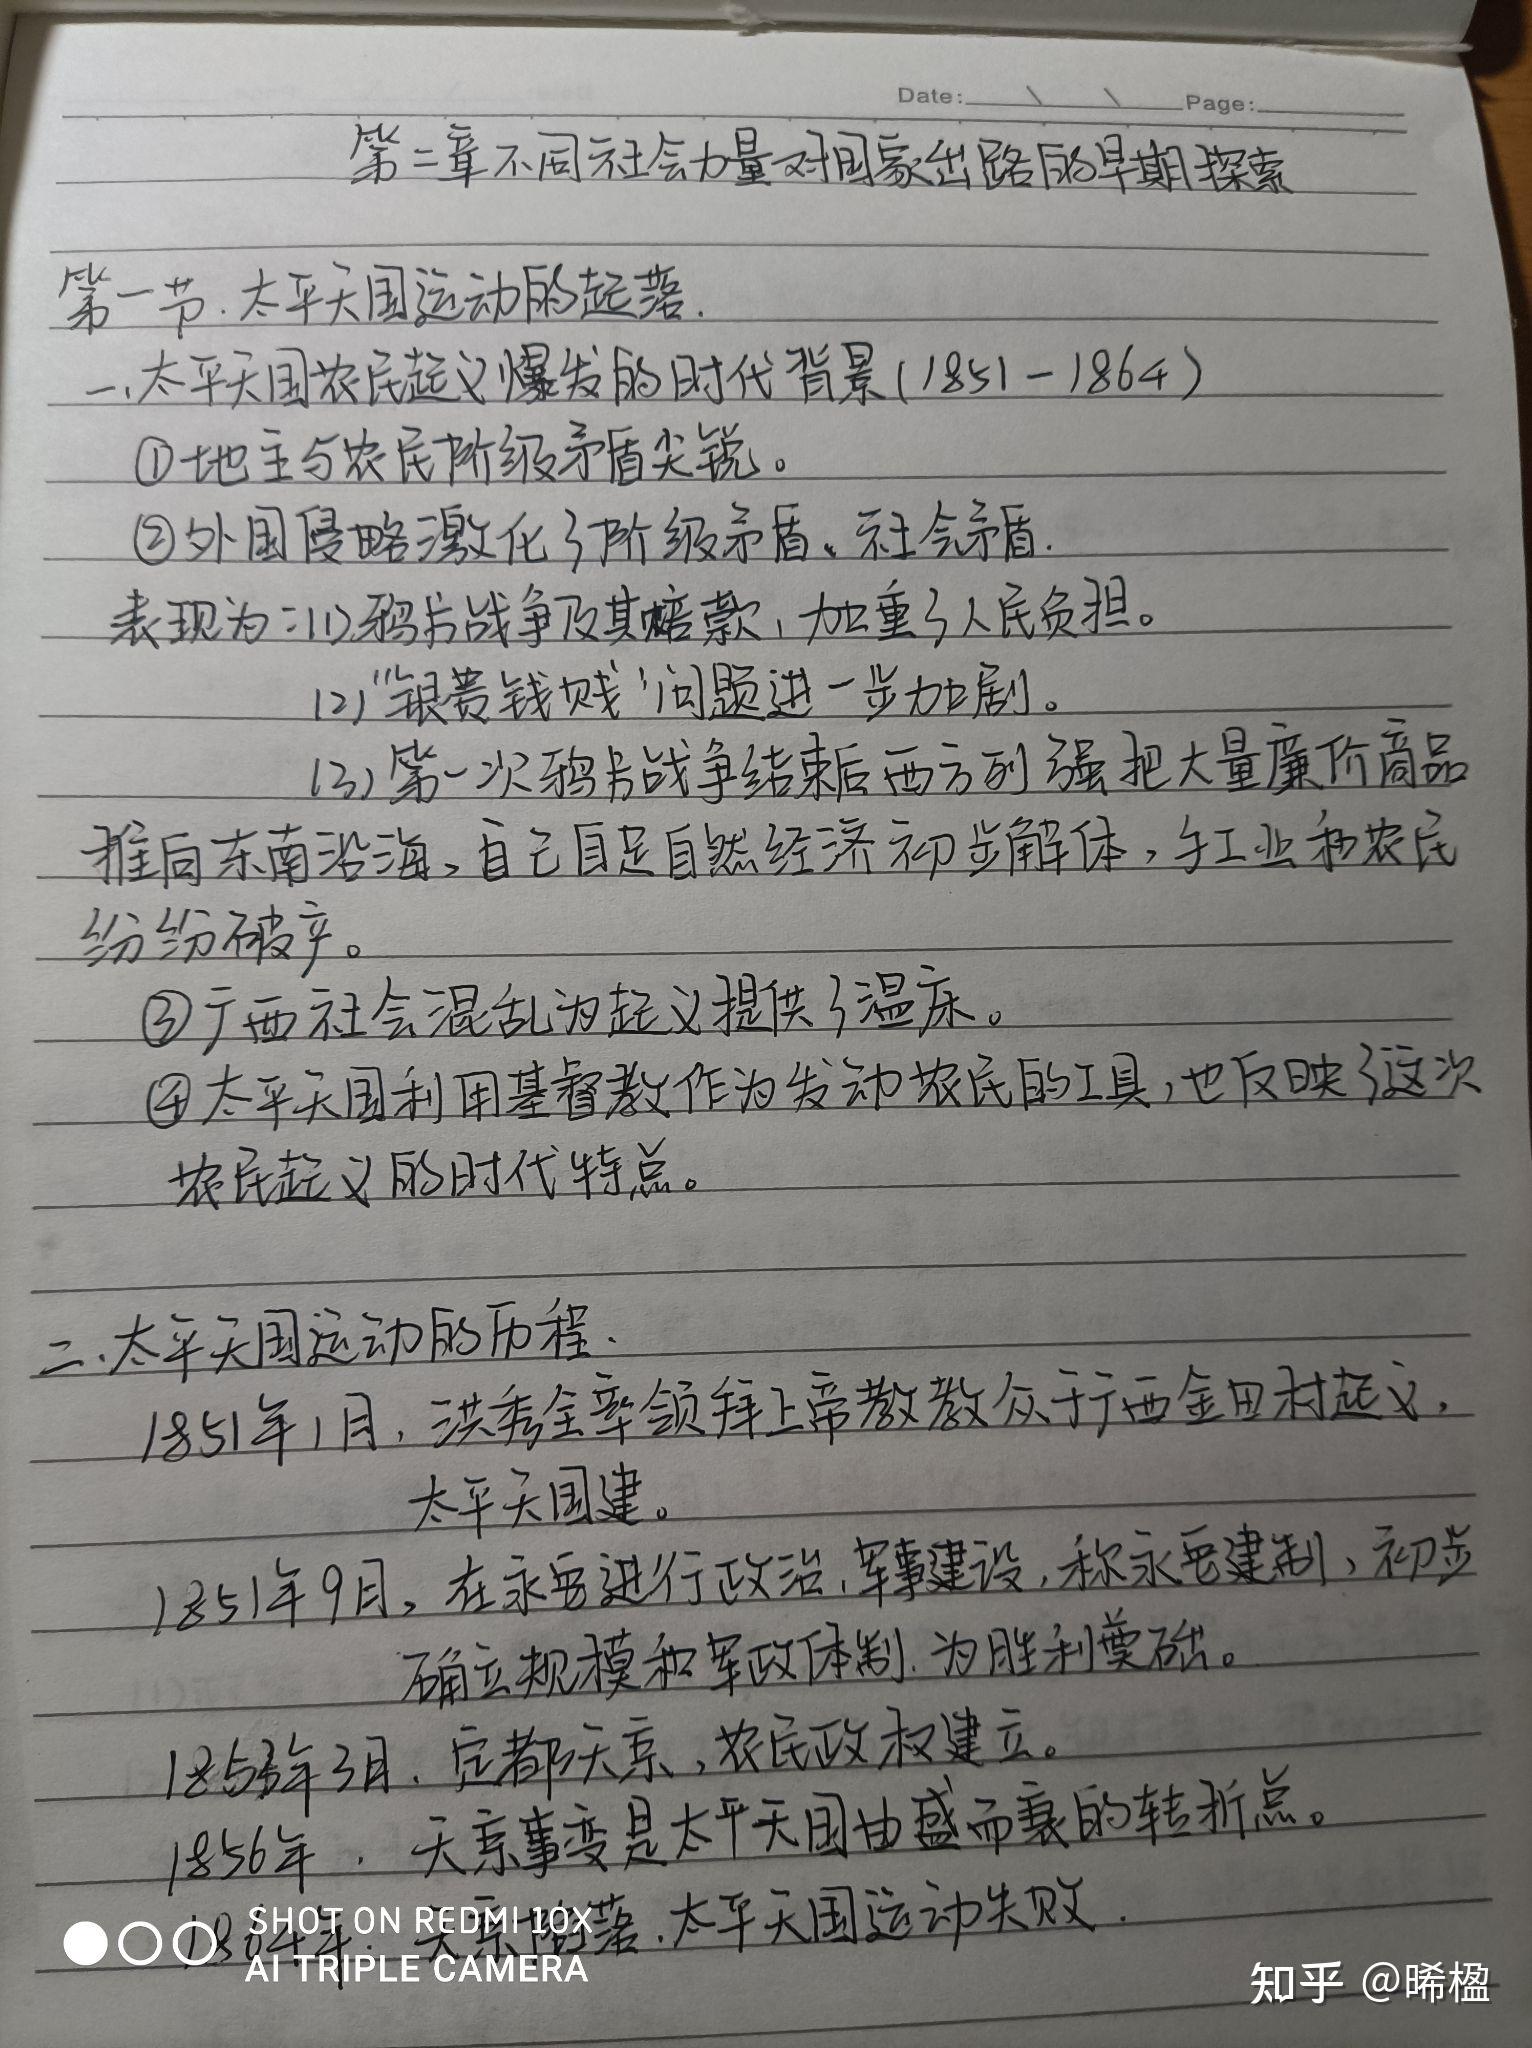 Date: \ \ Page:
第二章不同社会力量对国家出路的早期探索
第一节.太平天国运动的起落.
一、太平天国农民起义爆发的时代背景(1851-1864)
①地主与农民阶级矛盾尖锐。
②外国侵略激化了阶级矛盾、社会矛盾.
表现为:(1)鸦片战争及其赔款,加重了人民负担。
(2)"银贵钱贱"问题进一步加剧。
(3)第一次鸦片战争结束后西方列强把大量廉价商品
推向东南沿海,自己自足自然经济初步解体,手工业和农民
纷纷破产。
③广西社会混乱为起义提供了温床。
④太平天国利用基督教作为发动农民的工具,也反映了这次
农民起义的时代特点。
二、太平天国运动的历程.
1851年1月,洪秀全率领拜上帝教教众于广西金田村起义,
太平天国建。
1851年9月,在永安进行政治,军事建设,称永安建制,初步
确立规模和军政体制.为胜利奠础。
1853年3月.定都天京,农民政权建立。
1856年.天京事变是太平天国由盛而衰的转折点。
1864年.天京陷落.太平天国运动失败.
SHOT ON REDMI 10X
AI TRIPLE CAMERA
知乎 @晞楹